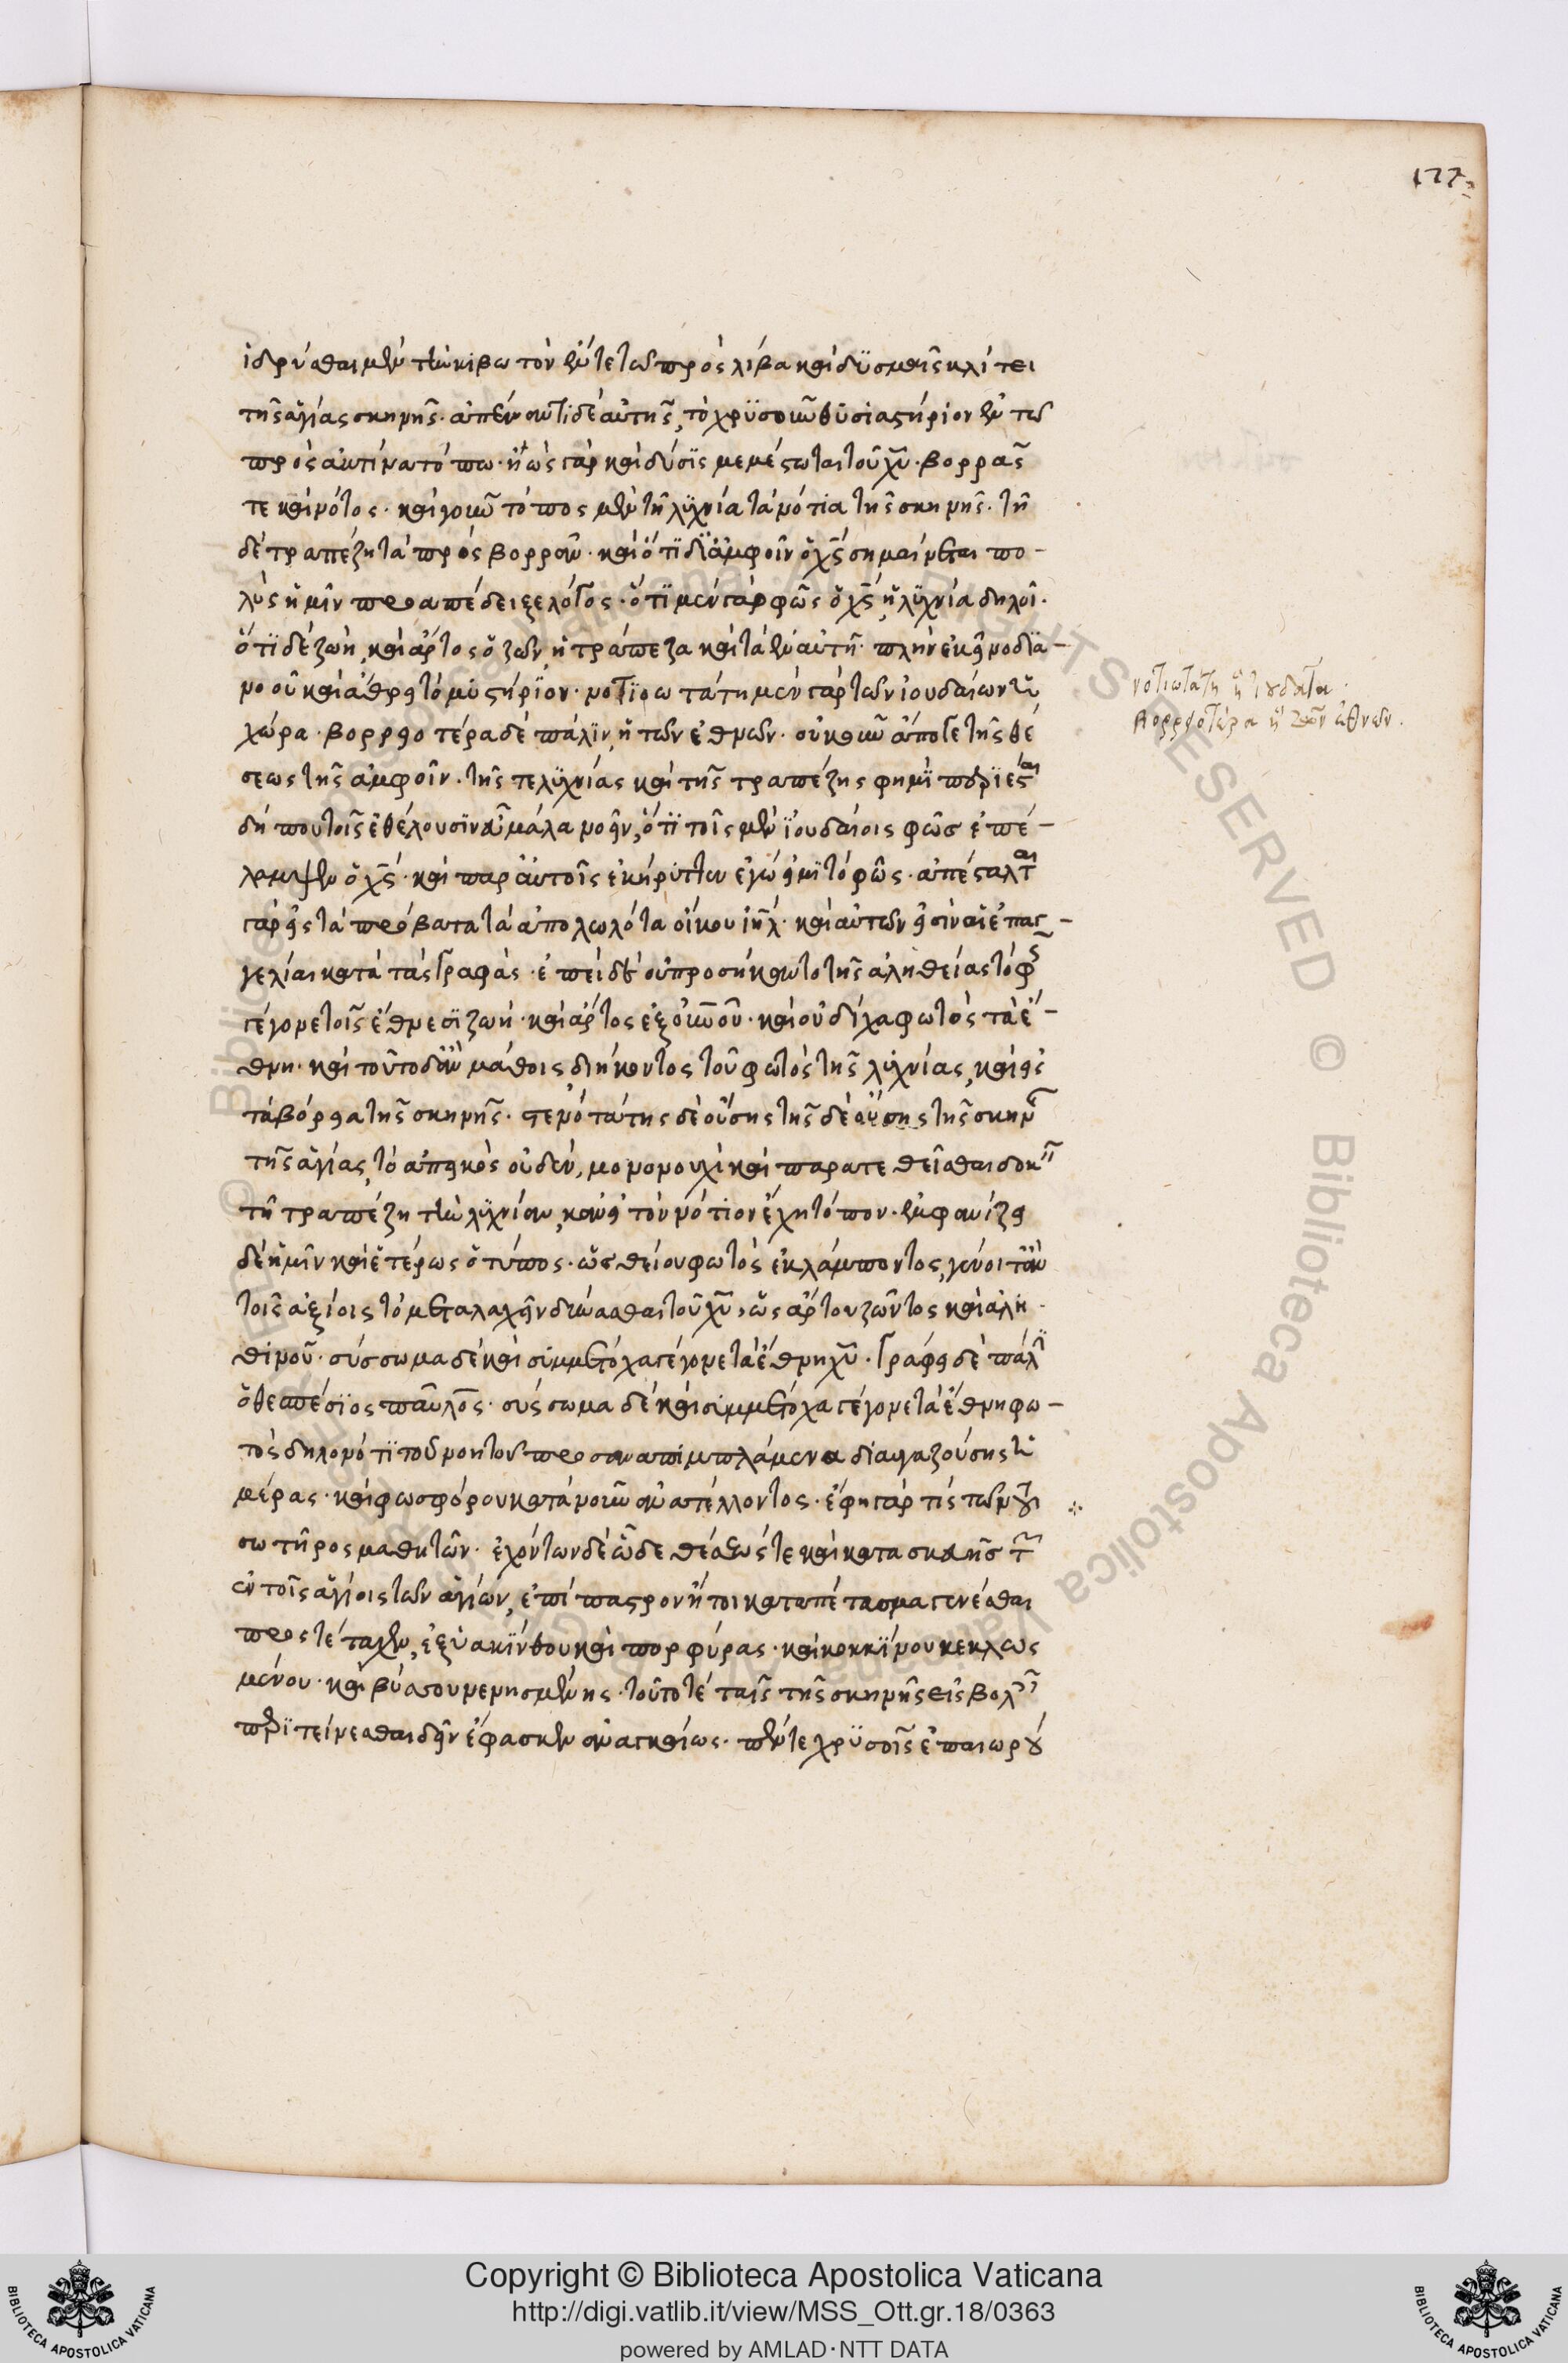 177
ἱδρύσθαι μὲν τὴν κιβωτὸν ἔν τε τῷ πρὸς λίβα καὶ δυσμαῖς κλίτει
τῆς ἁγίας σκηνῆς. ἀπεναντὶ δὲ αὐτῆς, τὸ χρυσοῦν θυσιαστήριον ἐν τῷ
πρὸς ἀκτῖνα τόπω. ἠὼς γὰρ καὶ δύσις μεμέστωται τοῦ χῦ. βορρᾶς
τε καὶ νότος. καὶ γοῦν τόπος μὲν τῇ λυχνία τὰ νότια τῆς σκηνῆς. τῇ
δὲ τραπέζη τὰ πρὸς βορρᾶν. καὶ ὅτι δι' ἀμφοῖν ὁ χς σημαίνεται πο-
λὺς ἡμῖν προαπέδειξε λόγος. ὅτι μὲν γὰρ φῶς ὁ χς, ἡ λυχνία δηλοῖ.
ὅτι δὲ ζωὴ, καὶ ἄρτος ὁ ζῶν, ἡ τράπεζα καὶ τὰ ἐν αὐτῇ. πλὴν ἐκεῖνο δια-
νοοῦ καὶ ἄθρει τὸ μυστήριον. νοτιωτάτη μὲν γὰρ τῶν ἰουδαίων ἡ
χώρα. βορρειοτέρα δὲ πάλιν, ἡ τῶν ἐθνῶν. οὐκοῦν ἀπό γε τῆς θέ
σεως τῆς ἀμφοῖν. τῆς τε λυχνίας καὶ τῆς τραπέζης φημὶ περιέσται
δή που τοῖς ἐθέλουσιν εὖ μάλα νοεῖν, ὅτι τοῖς μὲν ἰουδαίοις φῶς ἐπέ-
λαμψεν ὁ χς. καὶ παρ' αὐτοῖς ἐκήρυττεν ἐγώ εἰμι τὸ φῶς. ἀπέσταλται
γὰρ εἰς τὰ πρόβατα τὰ ἀπολωλότα οἴκου ιηλ. καὶ αὐτῶν εἰσὶν αἱ ἐπαγ-
γελίαι κατὰ τὰς γραφάς. ἐπειδὴ οὐ προσήκαντο τῆς ἀληθείας τὸ φῶς
γέγονε τοῖς ἔθνεσι ζωή. καὶ ἄρτος ἐξ οὐνοῦ. καὶ οὐ δίχα φωτὸς τὰ ἔ-
θνη. καὶ τοῦτο δ' ἂν μάθοις, διήκοντος τοῦ φωτὸς τῆς λυχνίας, καὶ εἰς
τὰ βόρεια τῆς σκηνῆς. στενοτάτης δὲ οὔσης τῆς σκην
τῆς ἁγίας, τὸ ἀπεικὸς οὐδὲν, μονονουχὶ καὶ παρατεθεῖσθαι δοκεῖν
τῇ τραπέζη τὴν λυχνίαν, κἂν εἰ τὸν νότιον ἔχη τόπον. ἐμφανίζει
δὲ ἡμῖν καὶ ἑτέρως ὁ τύπος. ὡς θείου φωτὸς ἐκλάμποντος, γένοιτ' ἂν
τοῖς ἀξίοις τὸ μεταλαχεῖν δύνασθαι τοῦ χῦ, ὡς ἄρτου ζῶντος καὶ ἀλη
θινοῦ. σύσσωμα δὲ καὶ συμμέτοχα γέγονε τὰ ἔθνη χῦ. γράφει δὲ πάλιν
ὁ θεσπέσιος παῦλος. σύσσωμα δὲ καὶ συμμέτοχα γέγονε τὰ ἔθνη φω-
τὸς δηλονότι τοῦ νοητοῦ προσαναπιμπλάμενα διαυγαζούσης ἡ
μέρας. καὶ φωσφόρου κατὰ νοῦν ἀνατέλλοντος. ἔφη γὰρ τίς τῶν τοῦ
σωτῆρος μαθητῶν. ἐχόντων δὲ ὧδε θέσεώς τε καὶ κατασκευῆς τῶν
ἐν τοῖς ἁγίοις τῶν ἁγίων, ἐπίσπαστρον ἤτοι καταπέτασμα γενέσθαι
προστέταχεν, ἐξ ὑακίνθου καὶ πορφύρας. καὶ κοκκίνου κεκλωσ
μένου. καὶ βύσσου νενησμένης. τοῦτό τε ταῖς τῆς σκηνῆς εἰσβολαῖς
περιτείνεσθαι δεῖν ἔφασκεν ἀναγκαίως. πέντε χρυσοῖς ἐπαιωρού
νοτιωτάτη ἡ ἰουδαία.
βορρειοτέρα ἡ τῶν ἐθνῶν.
Copyright © Biblioteca Apostolica Vaticana
http://digi.vatlib.it/view/MSS_Ott.gr.18/0363
powered by AMLAD·NTT DATA
BIBLIOTECA APOSTOLICA VATICANA
BIBLIOTECA APOSTOLICA VATICANA